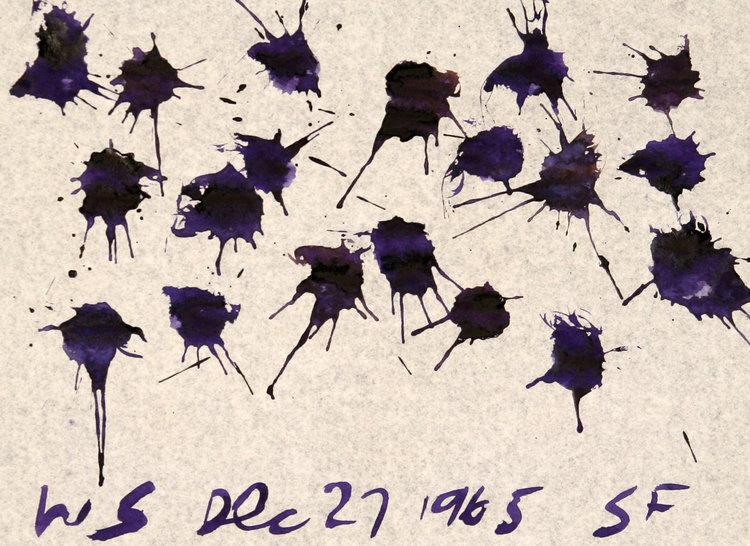 WS Dec 27 1965 SF